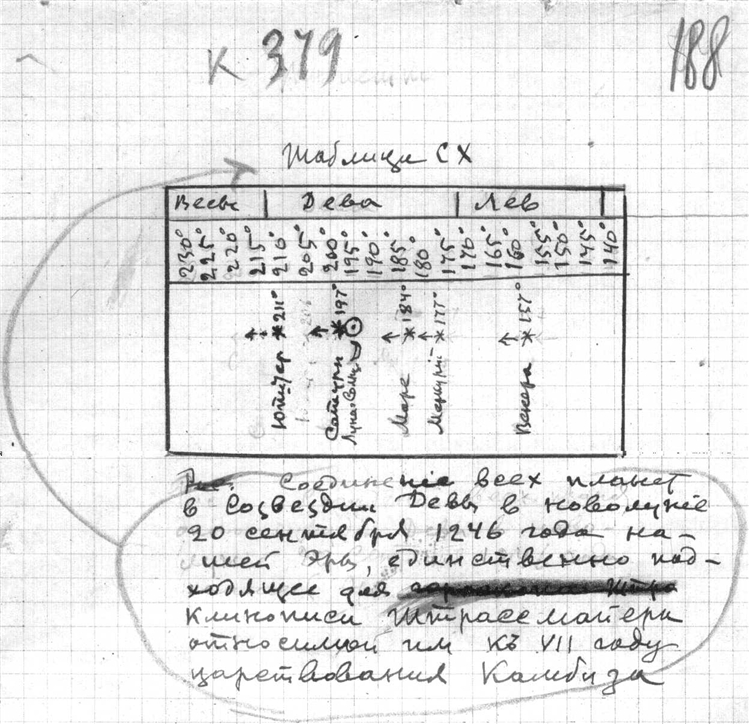 К 379
188
Таблица СХ
Весы Дева Лев
230° 225° 220° 215° 210° 205° 200° 195° 190° 185° 180° 175° 170° 165° 160° 155° 150° 145° 140°
211° 197° 184° 177° 157°
Юпитер Сатурн Луна Марс Меркурий Венера
Соединение всех планет
в Созвездии Девы в новолуніе
20 сентября 1246 года на-
шей эры, единственно под-
ходящее для
клинописи Штрассмайера
относимой им къ VII году
царствования Камбиза